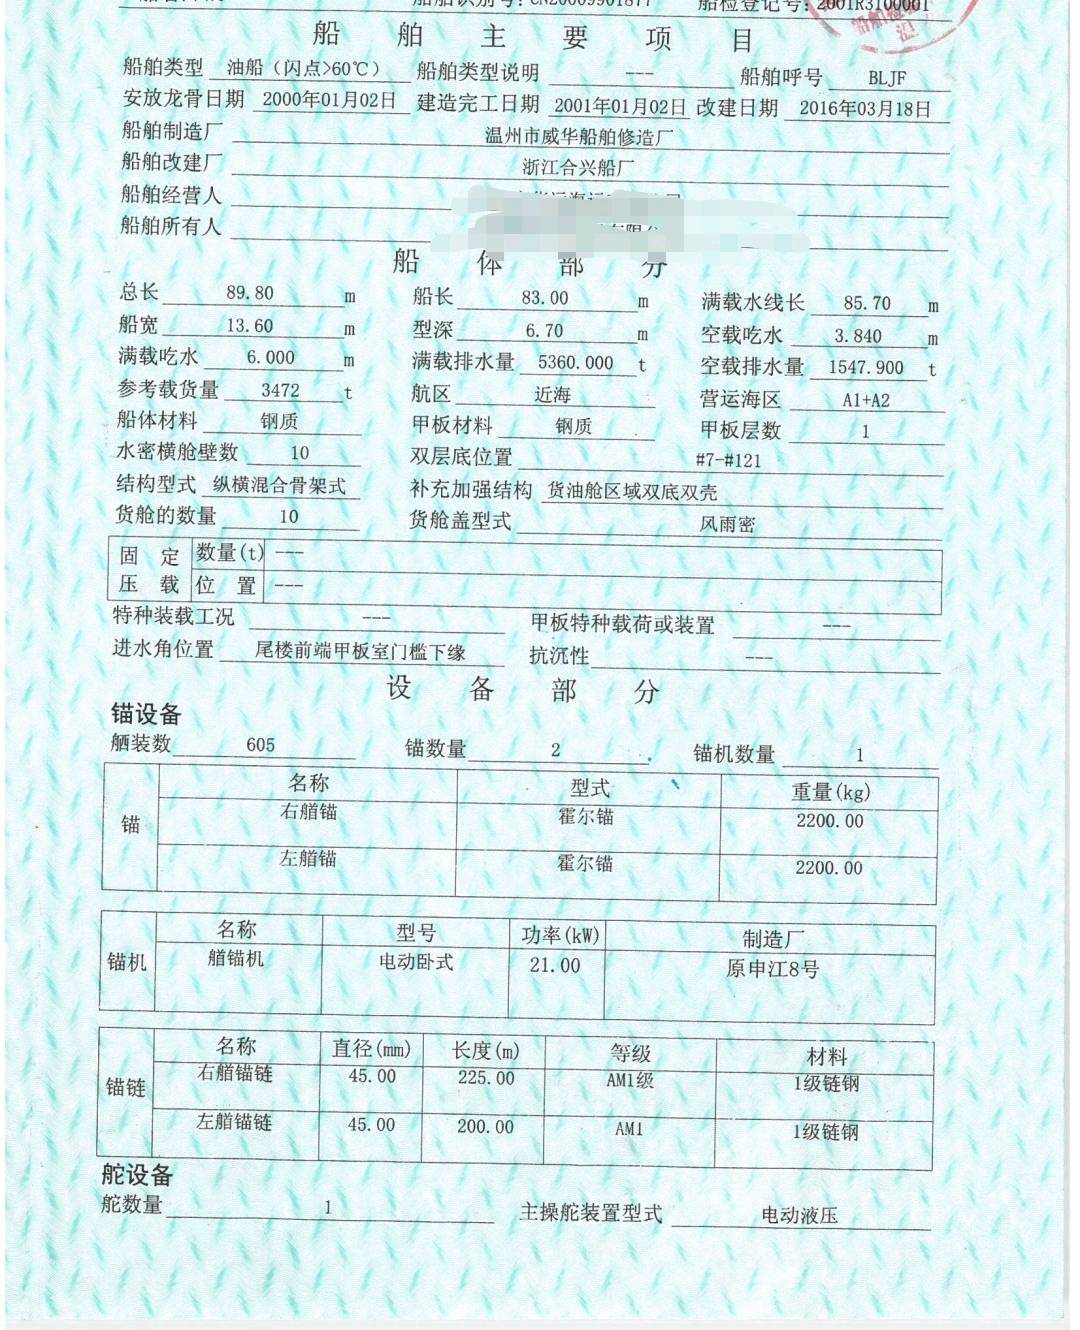 船舶识别号：CN20009901877 船检登记号：2001R3100001
船 舶 主 要 项 目
船舶类型 油船（闪点>60℃） 船舶类型说明 --- 船舶呼号 BLJF
安放龙骨日期 2000年01月02日 建造完工日期 2001年01月02日 改建日期 2016年03月18日
船舶制造厂 温州市威华船舶修造厂
船舶改建厂 浙江合兴船厂
船舶经营人
船舶所有人
船 体 部 分
总长 89.80 m 船长 83.00 m 满载水线长 85.70 m
船宽 13.60 m 型深 6.70 m 空载吃水 3.840 m
满载吃水 6.000 m 满载排水量 5360.000 t 空载排水量 1547.900 t
参考载货量 3472 t 航区 近海 营运海区 A1+A2
船体材料 钢质 甲板材料 钢质 甲板层数 1
水密横舱壁数 10 双层底位置 #7-#121
结构型式 纵横混合骨架式 补充加强结构 货油舱区域双底双壳
货舱的数量 10 货舱盖型式 风雨密
固 定 数量(t) ---
压 载 位 置 ---
特种装载工况 --- 甲板特种载荷或装置 ---
进水角位置 尾楼前端甲板室门槛下缘 抗沉性 ---
设 备 部 分
锚设备
舾装数 605 锚数量 2 锚机数量 1
锚 名称 型式 重量(kg)
右艏锚 霍尔锚 2200.00
左艏锚 霍尔锚 2200.00
锚机 名称 型号 功率(kW) 制造厂
艏锚机 电动卧式 21.00 原申江8号
锚链 名称 直径(mm) 长度(m) 等级 材料
右艏锚链 45.00 225.00 AM1级 1级链钢
左艏锚链 45.00 200.00 AM1 1级链钢
舵设备
舵数量 1 主操舵装置型式 电动液压